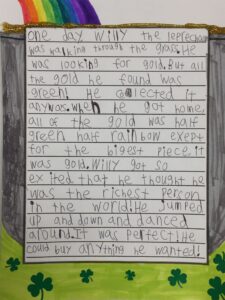 one day Willy the leprechaun
was walking through the grass. He
was looking for gold. But all
the gold he found was
green! He colected it
anyways. when he got home,
all of the gold was half
green half rainbow exept
for the bigest piece, it
was gold. Willy got so
exited that he thought he
was the richest person
in the world! He jumped
up and down and danced
around. It was perfect! He
could buy anything he wanted!